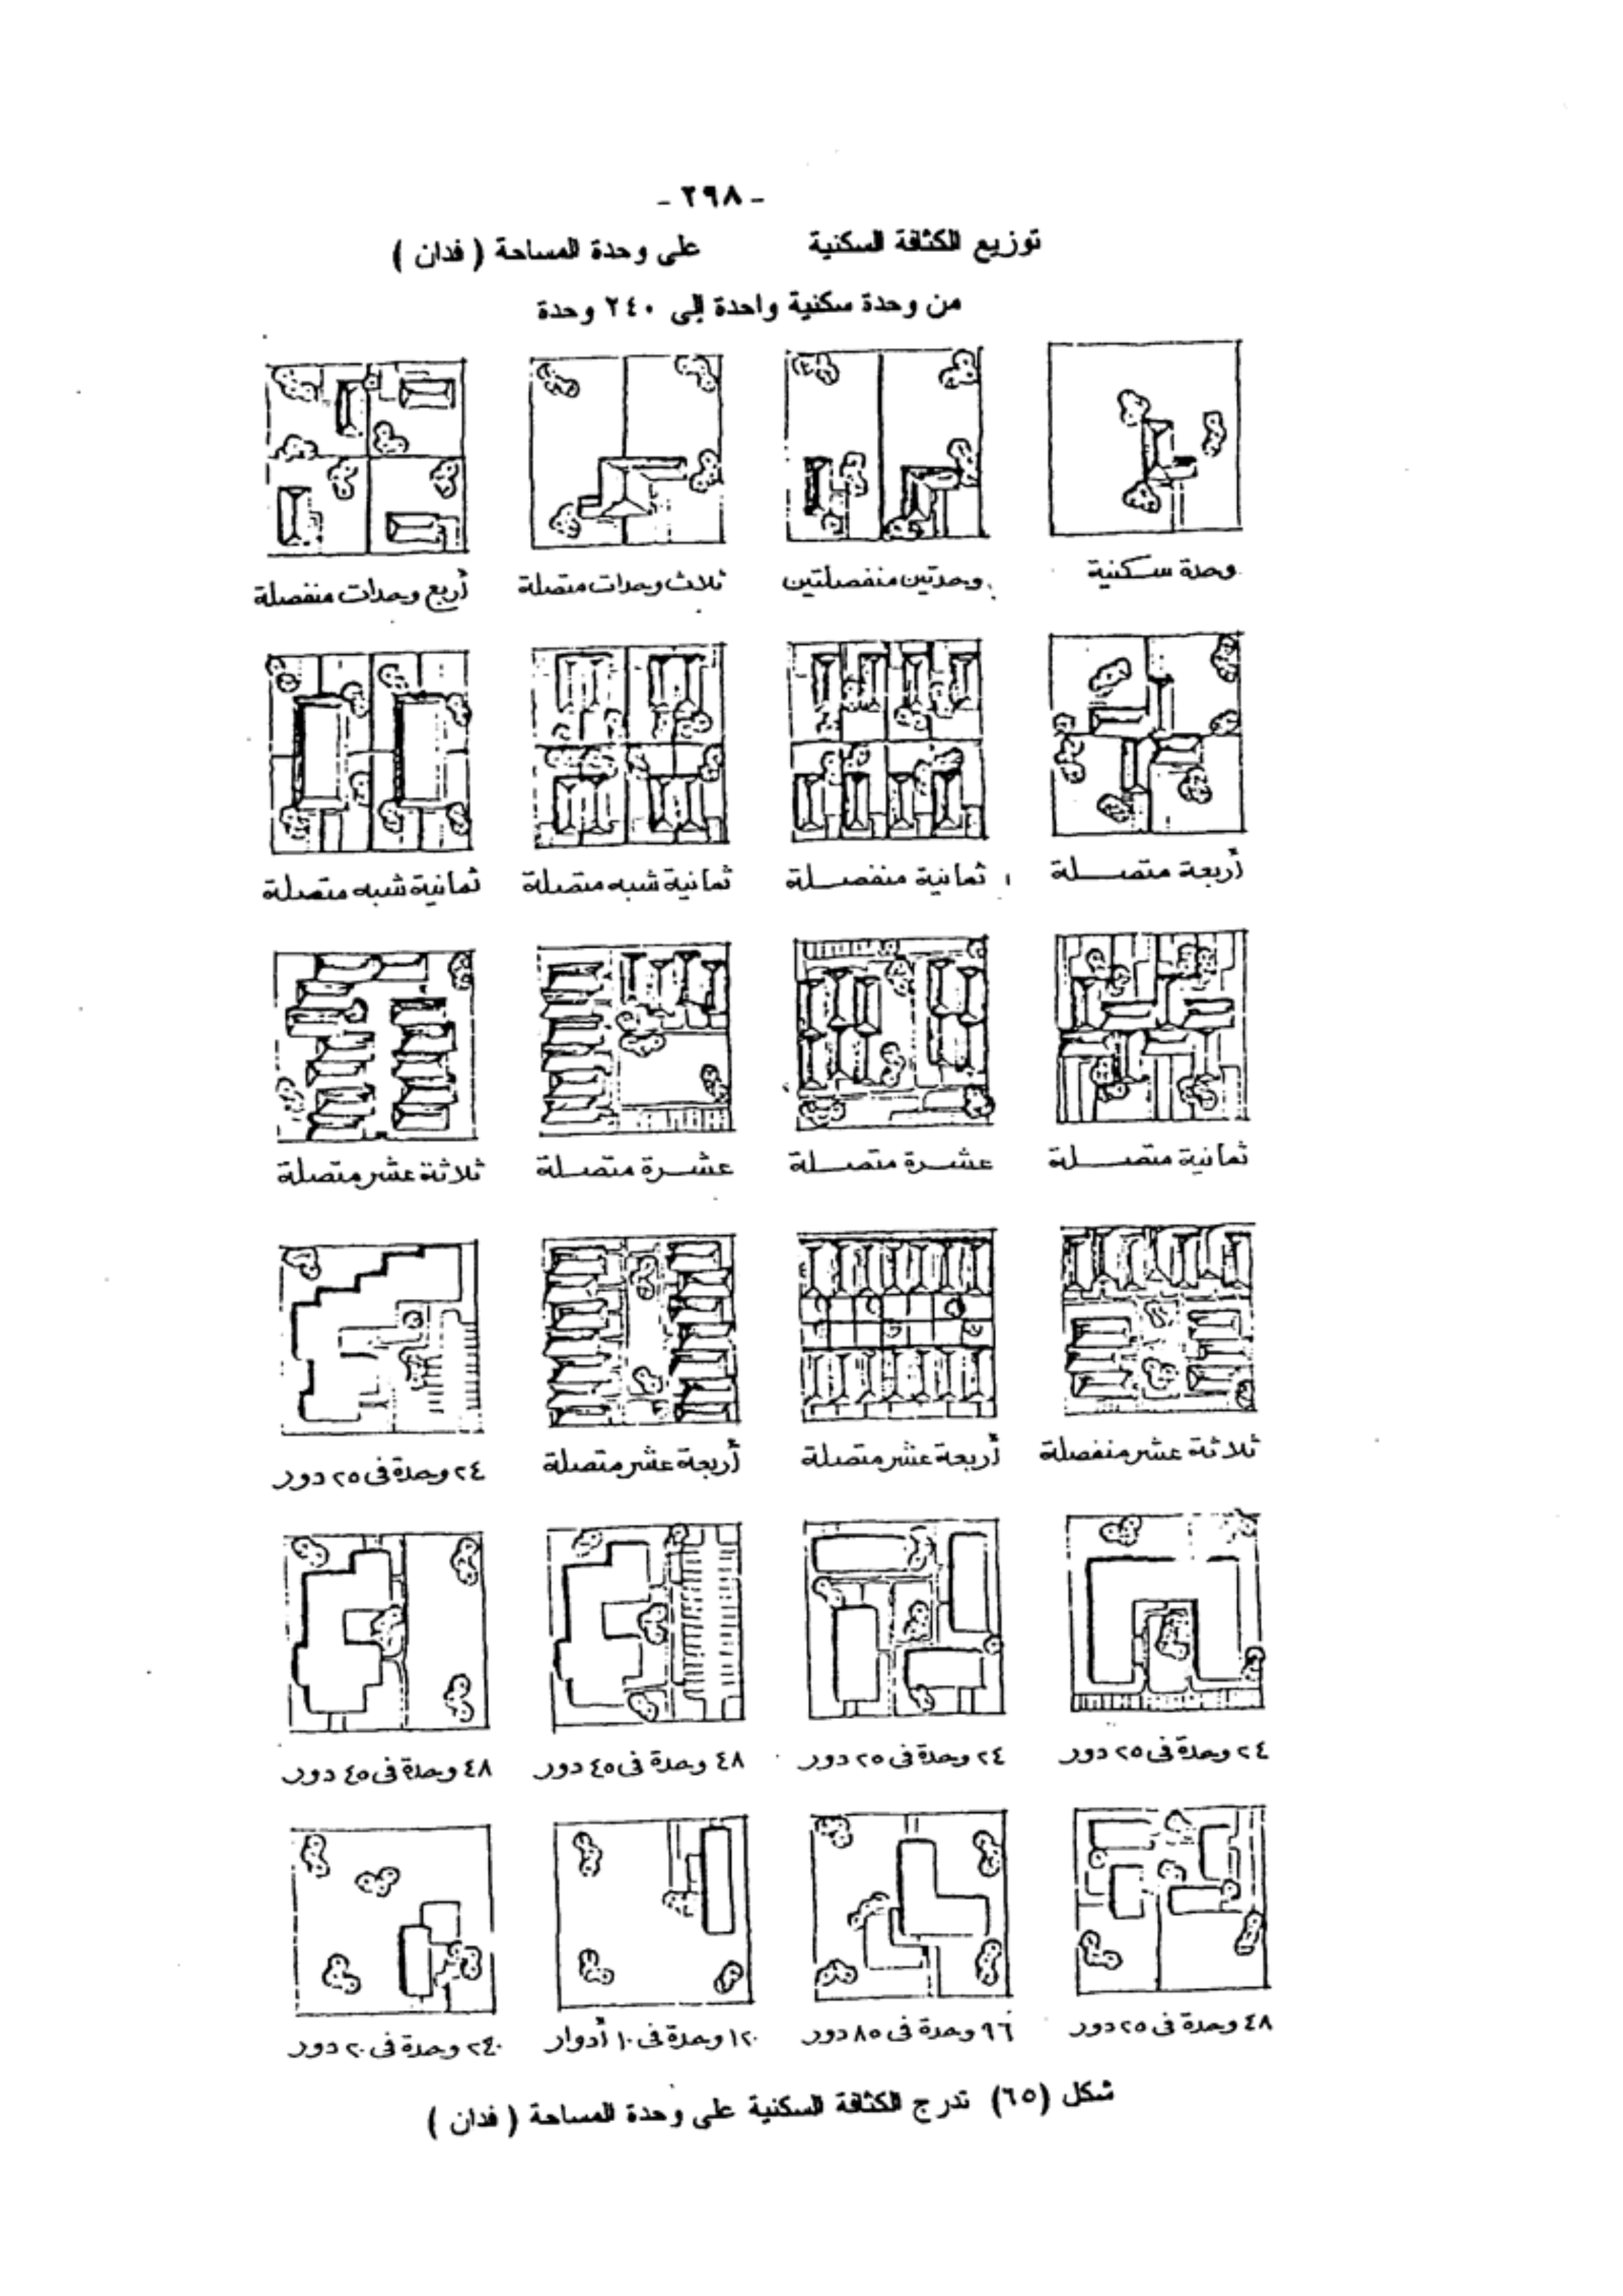 - ٢٩٨ -
توزيع الكثافة السكنية على وحدة المساحة ( فدان )
من وحدة سكنية واحدة إلى ٢٤٠ وحدة
وحدة سكنية وحدتين منفصلتين ثلاث وحدات متصلة أربع وحدات منفصلة
أربعة متصلة ثمانية منفصلة ثمانية شبه متصلة ثمانية شبه متصلة
ثمانية متصلة عشرة متصلة عشرة متصلة ثلاثة عشر متصلة
ثلاثة عشر منفصلة أربعة عشر متصلة أربعة عشر متصلة ٢٤ وحدة فى ٢٥ دور
٢٤ وحدة فى ٢٥ دور ٢٤ وحدة فى ٢٥ دور ٤٨ وحدة فى ٤٥ دور ٤٨ وحدة فى ٤٥ دور
٤٨ وحدة فى ٢٥ دور ٩٦ وحدة فى ٨٥ دور ١٢٠ وحدة فى ١٠ أدوار ٢٤٠ وحدة فى ٢٠ دور
شكل (٦٥) تدرج الكثافة السكنية على وحدة المساحة ( فدان )